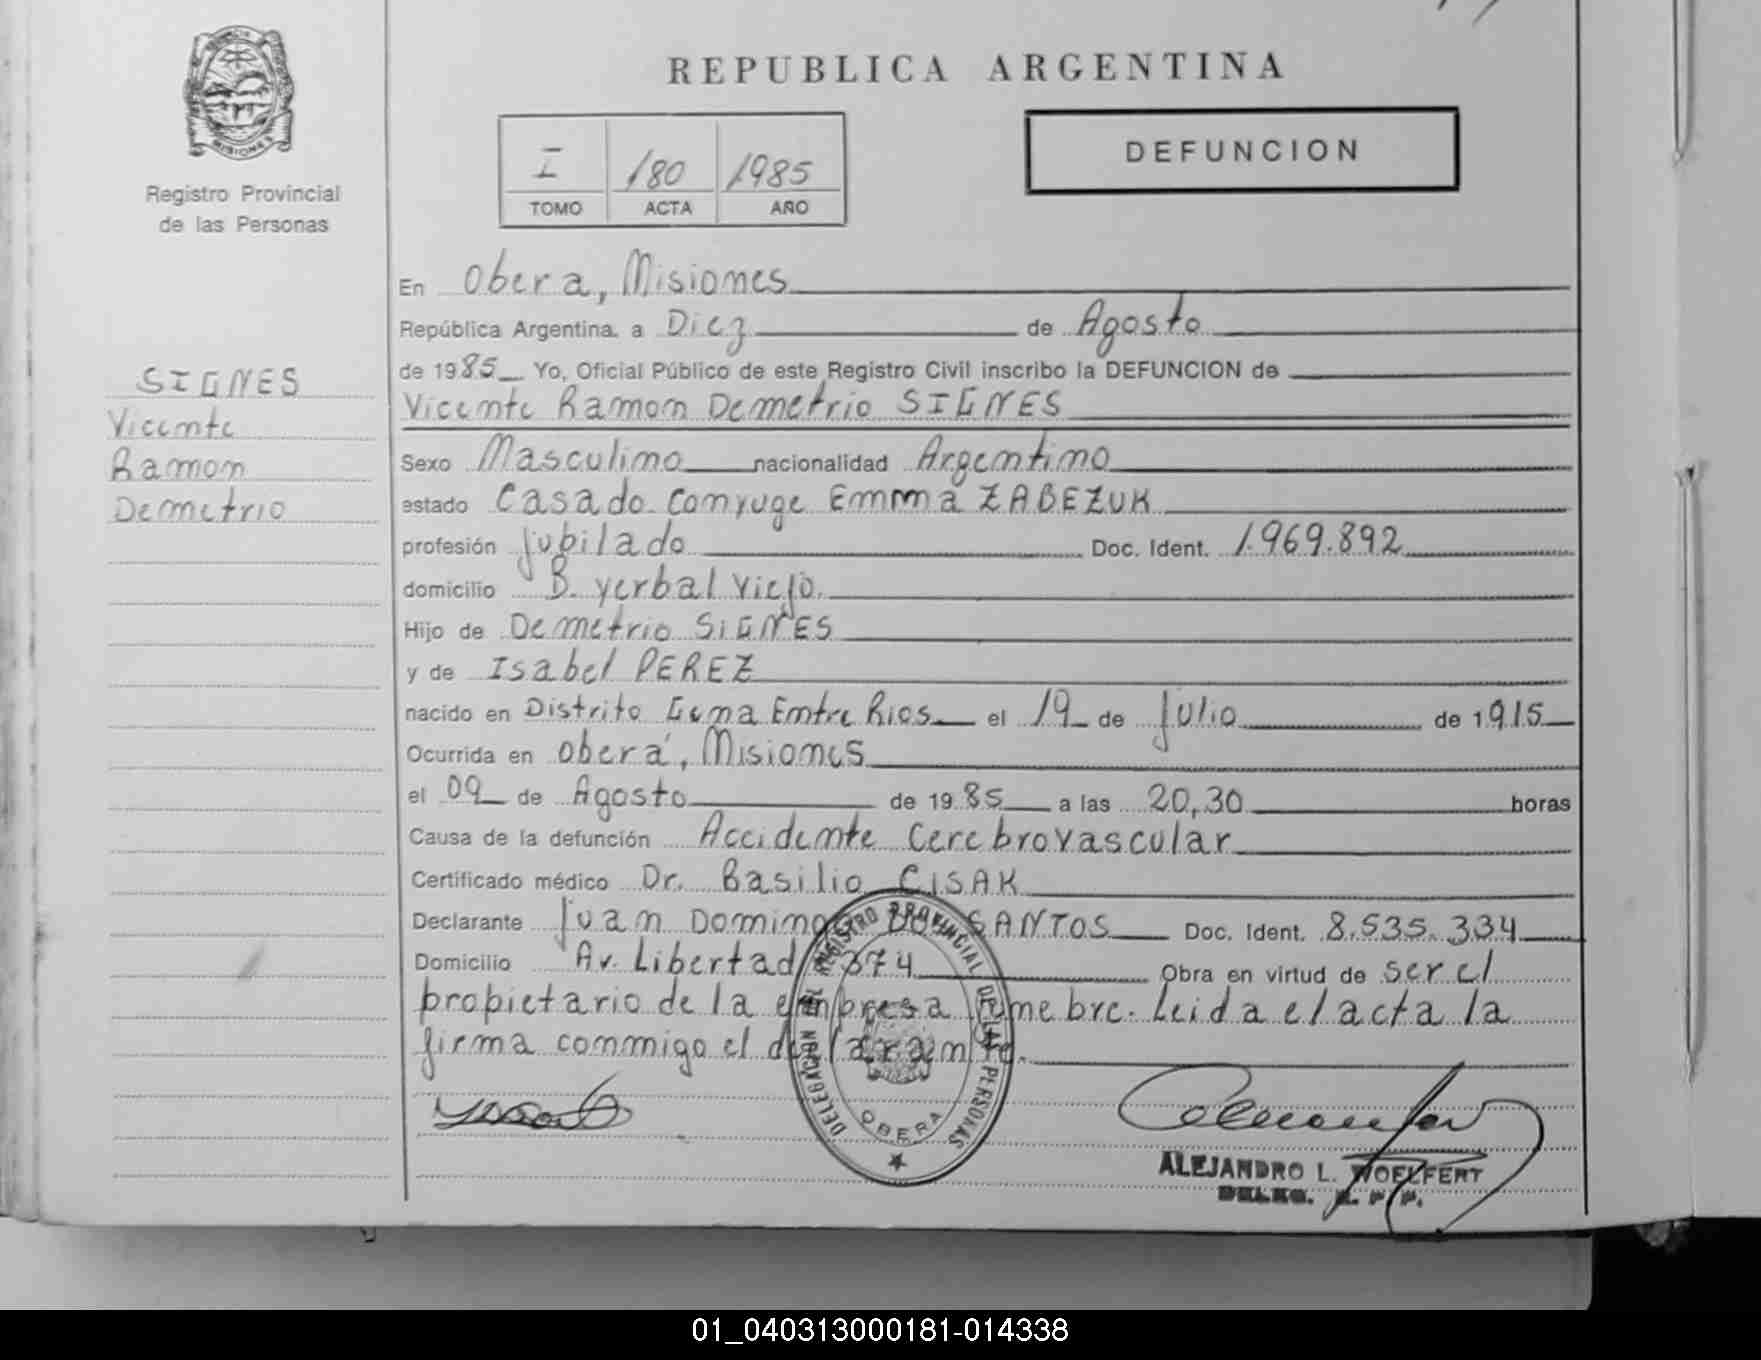 REPUBLICA ARGENTINA
DEFUNCION
I 180 1985
TOMO ACTA AÑO
MISIONES
Registro Provincial
de las Personas
SIGNES
Vicente
Ramon
Demetrio
En Obera, Misiones
República Argentina, a Diez de Agosto
de 1985 Yo, Oficial Público de este Registro Civil inscribo la DEFUNCION de
Vicente Ramon Demetrio SIGNES
Sexo Masculino nacionalidad Argentino
estado Casado. Conyuge Emma ZABEZUK
profesión jubilado Doc. Ident. 1.969.892
domicilio B. yerbal viejo.
Hijo de Demetrio SIGNES
y de Isabel PEREZ
nacido en Distrito Gena Entre Rios el 19 de julio de 1915
Ocurrida en Oberá, Misiones
el 09 de Agosto de 1985 a las 20,30 horas
Causa de la defunción Accidente Cerebrovascular
Certificado médico Dr. Basilio CISAK
Declarante Juan Domingo DOS SANTOS Doc. Ident. 8.535.334
Domicilio Av. Libertad 374 Obra en virtud de ser el
propietario de la empresa funebre. Leida el acta la
firma conmigo el declarante.
DELEGACION DEL REGISTRO PROVINCIAL DE LAS PERSONAS
OBERA
ALEJANDRO L. WOELFERT
01_040313000181-014338